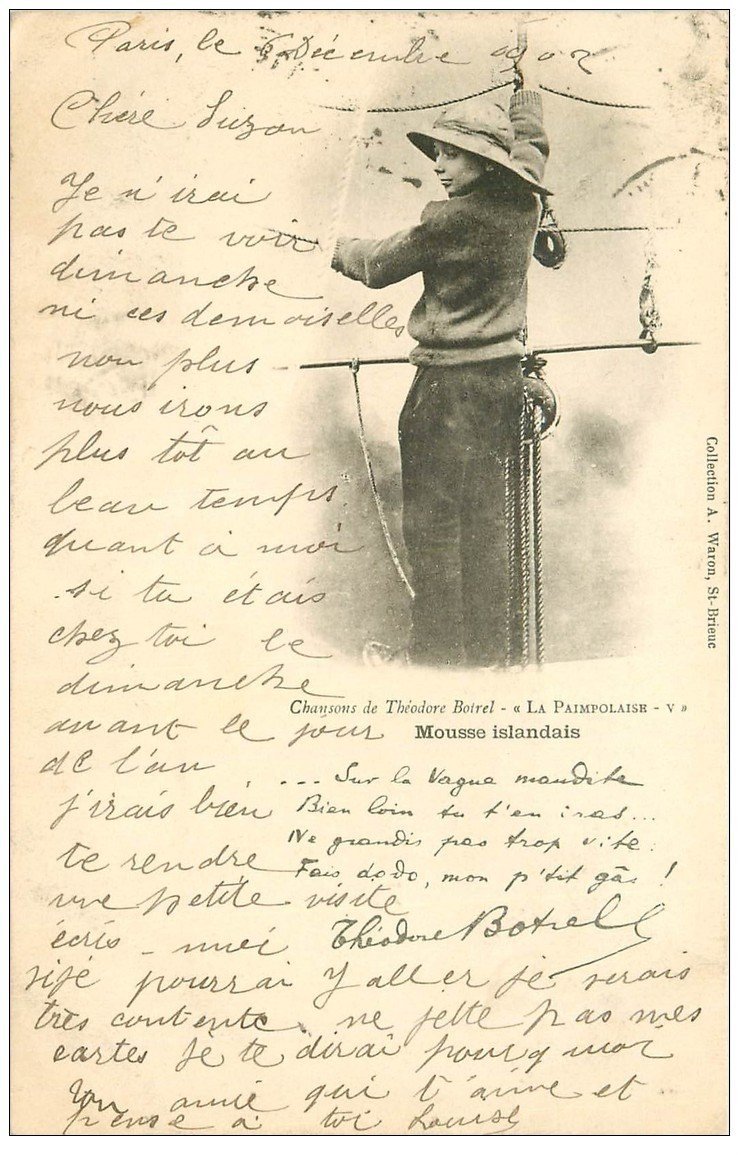 Paris, le 6 Décembre 1902
Chère Suzon
Je n'irai
pas te voir
dimanche
ni ces demoiselles
non plus
nous irons
plus tôt au
beau temps
quant à moi
si tu étais
chez toi le
dimanche
avant le jour
de l'an
j'irais bien
te rendre
une petite visite
écris-moi
si je pourrai y aller je serais
très contente. ne jette pas mes
cartes je te dirai pourquoi
Ton amie qui t'aime et
pense à toi Louise
Collection A. Waron, St-Brieuc
Chansons de Théodore Botrel - « LA PAIMPOLAISE - V »
Mousse islandais
... Sur la Vague maudite
Bien loin tu t'en iras...
Ne grandis pas trop vite :
Fais dodo, mon p'tit gâs !
Théodore Botrel